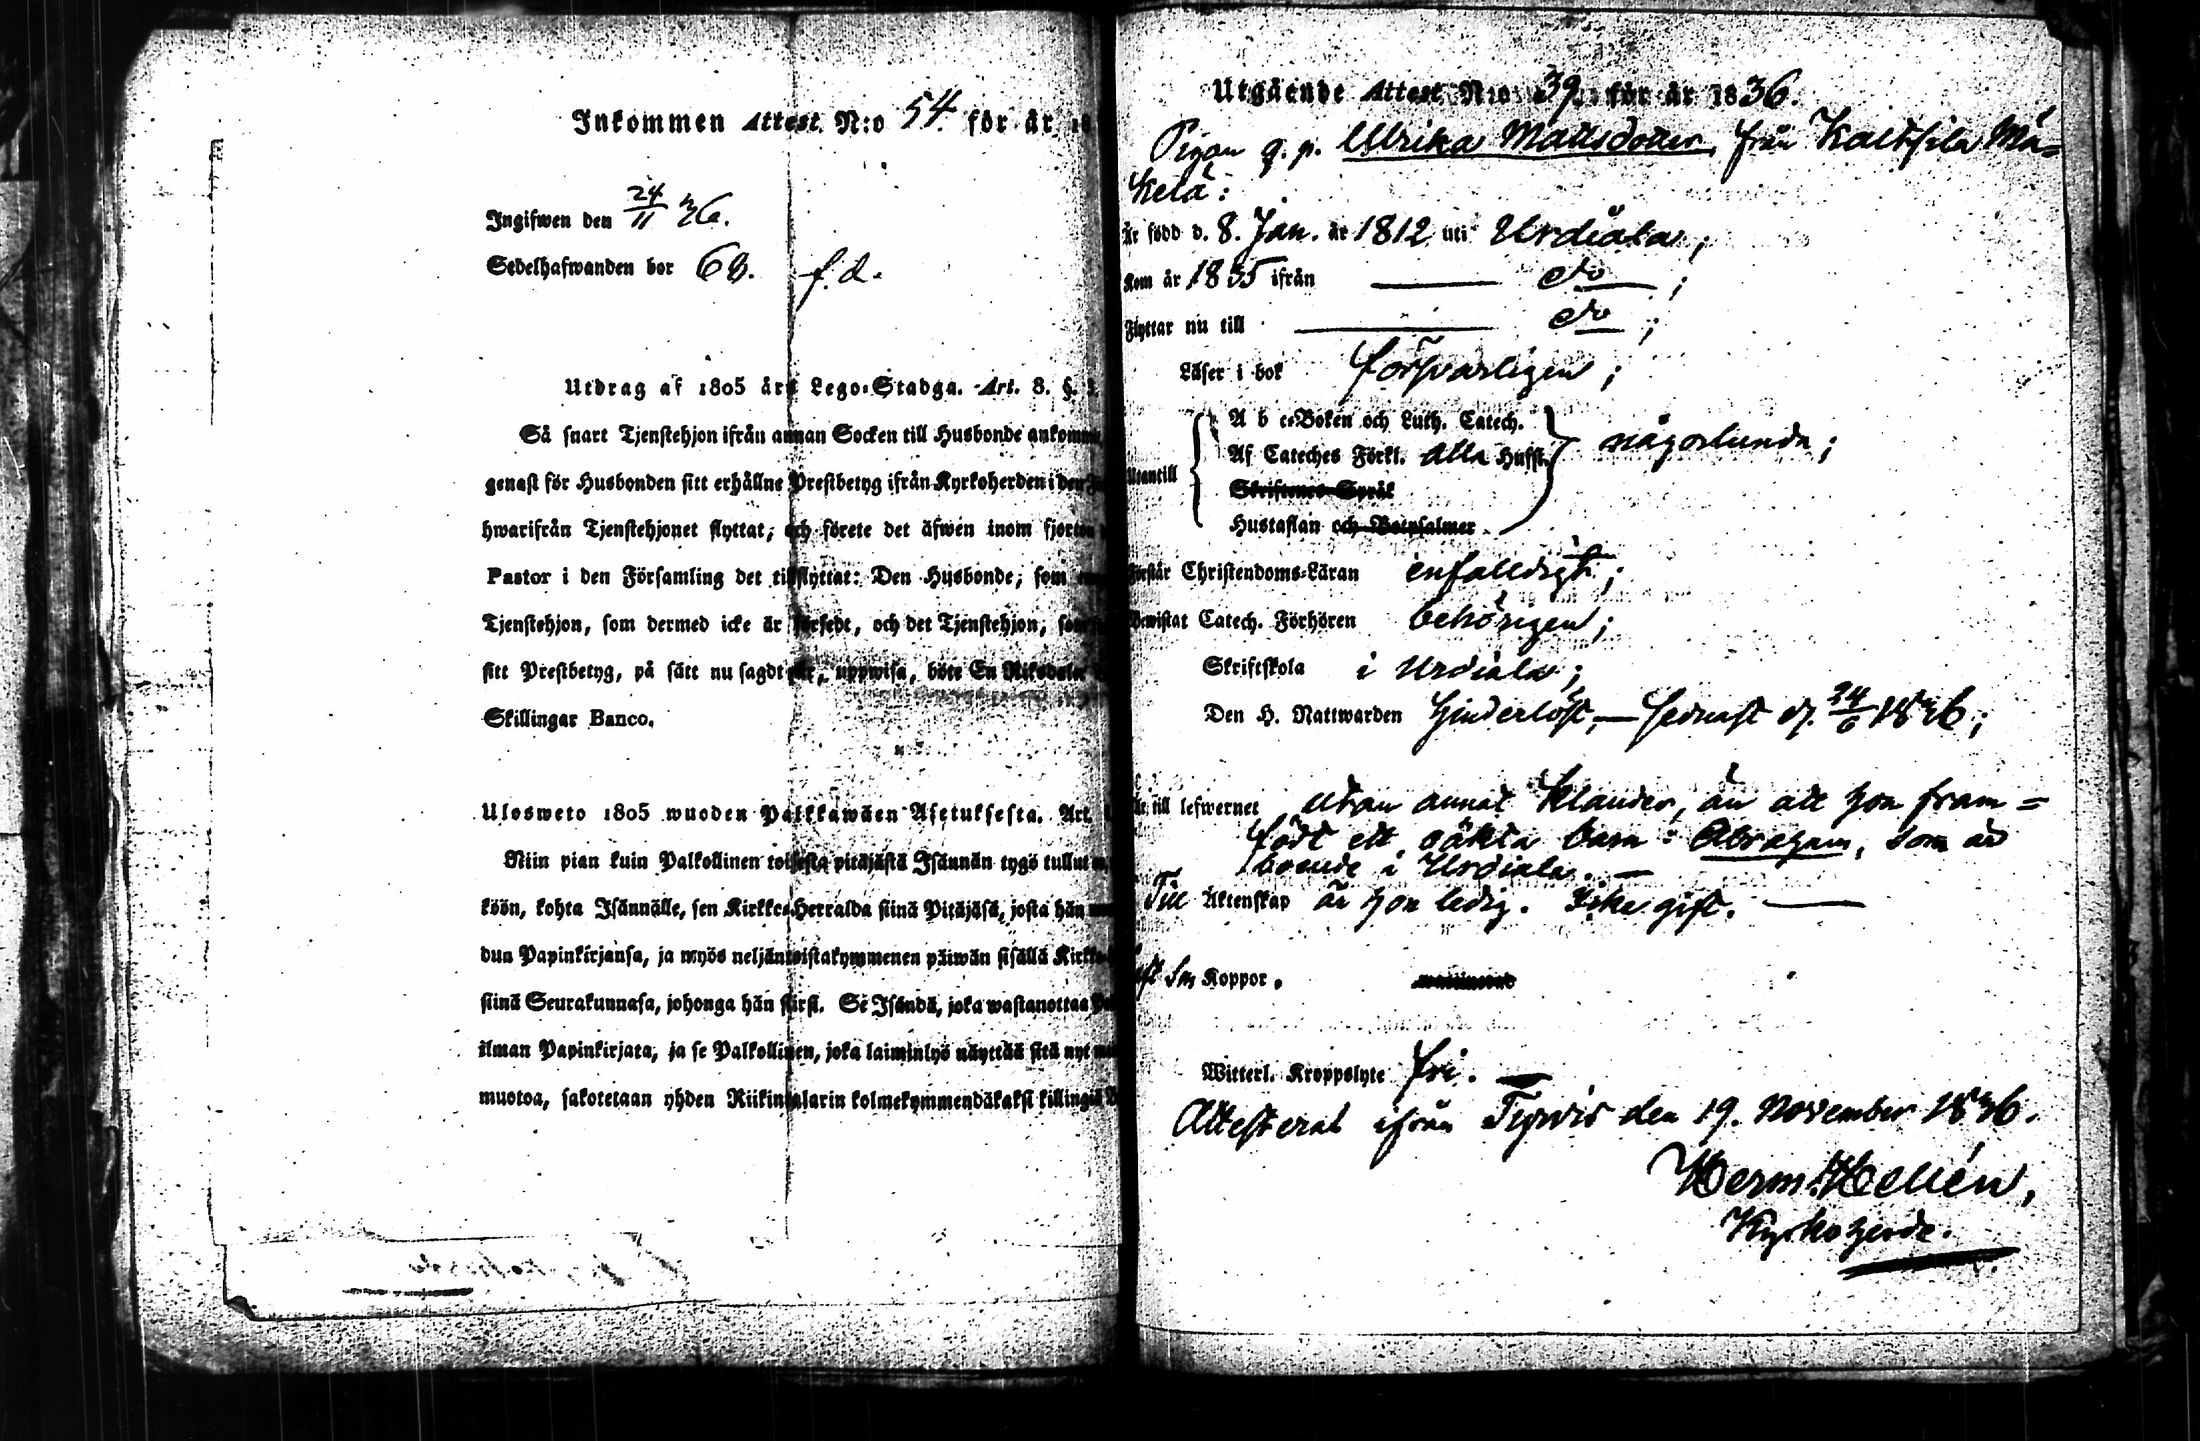 Inkommen Attest. N:o 54. för år 18
Ingifwen den 24/11 36.
Sedelhafwanden bor 68. f. d.
Utdrag af 1805 års Lego-Stadga. Art. 8. §.
Så snart Tjenstehjon ifrån annan Socken till Husbonde
genast för Husbonden sitt erhållne Prestbetyg ifrån Kyrkoherden i den
hwarifrån Tjenstehjonet flyttat, och förete det äfwen inom fjorton
Pastor i den Församling det tillflyttat: Den Husbonde, som
Tjenstehjon, som dermed icke är försedt, och det Tjenstehjon,
sitt Prestbetyg, på sätt nu sagdt är, uppwisa, böte En Riksdaler
Skillingar Banco.
Ulosweto 1805 wuoden Palkkawäen Asetuksesta. Art.
Niin pian kuin Palkollinen toisesta pitäjästä Isännän tygö tullut
köön, kohta Isännälle, sen Kirkko-Herralda siinä Pitäjäsä, josta hän
dun Papinkirjansa, ja myös neljäntoistakymmenen päiwän sisällä
siinä Seurakunnasa, johonga hän siirsi. Se Isändä, joka wastanottaa
ilman Papinkirjata, ja se Palkollinen, joka laiminlyö näyttää sitä nyt
muotoa, sakotetaan yhden Riikintalarin kolmekymmendäkaksi killingiä
Utgående Attest N:o 39. för år 1836.
Pigan q. p. Ulrika Mattsdotter, från Kaltsila Mä=
kelä:
Är född d. 8. Jan. år 1812 uti Urdiala;
Kom år 1835 ifrån — do ;
Flyttar nu till — do ;
Läser i bok försvarligen;
A b c-Boken och Luth. Catech.
Utantill Af Cateches Förkl. alla Husst. någorlunda;
Skriftenes Språk
Hustaflan och Botpsalmer
Förstår Christendoms-Läran enfalldigt;
Bewistat Catech. Förhören behörigen;
Skriftskola i Urdiala;
Den H. Nattwarden hinderlöst, — sednast d. 24/6 1836;
Är till lefwernet utan annat klander, än att hon fram=
födt ett oäkta barn: Abraham, som är
boende i Urdiala. —
Till Äktenskap är hon ledig. Icke gift. —
Koppor.
Witterl. Kroppslyte fri. —
Attesterat ifrån Tyrvis den 19. November 1836.
Herm. Hellén,
Kyrkoherde.